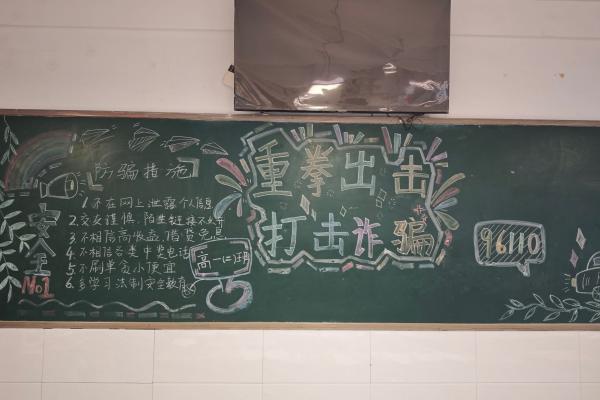 防骗措施
1 不在网上泄露个人信息
2.交友谨慎,陌生链接不点开
3 不相信高收益,借贷免息
4.不相信各类中奖电话
5 不刷单贪小便宜
6.多学习法制安全教育
安全
No1
高一(二)班
重拳出击
打击诈骗
96110